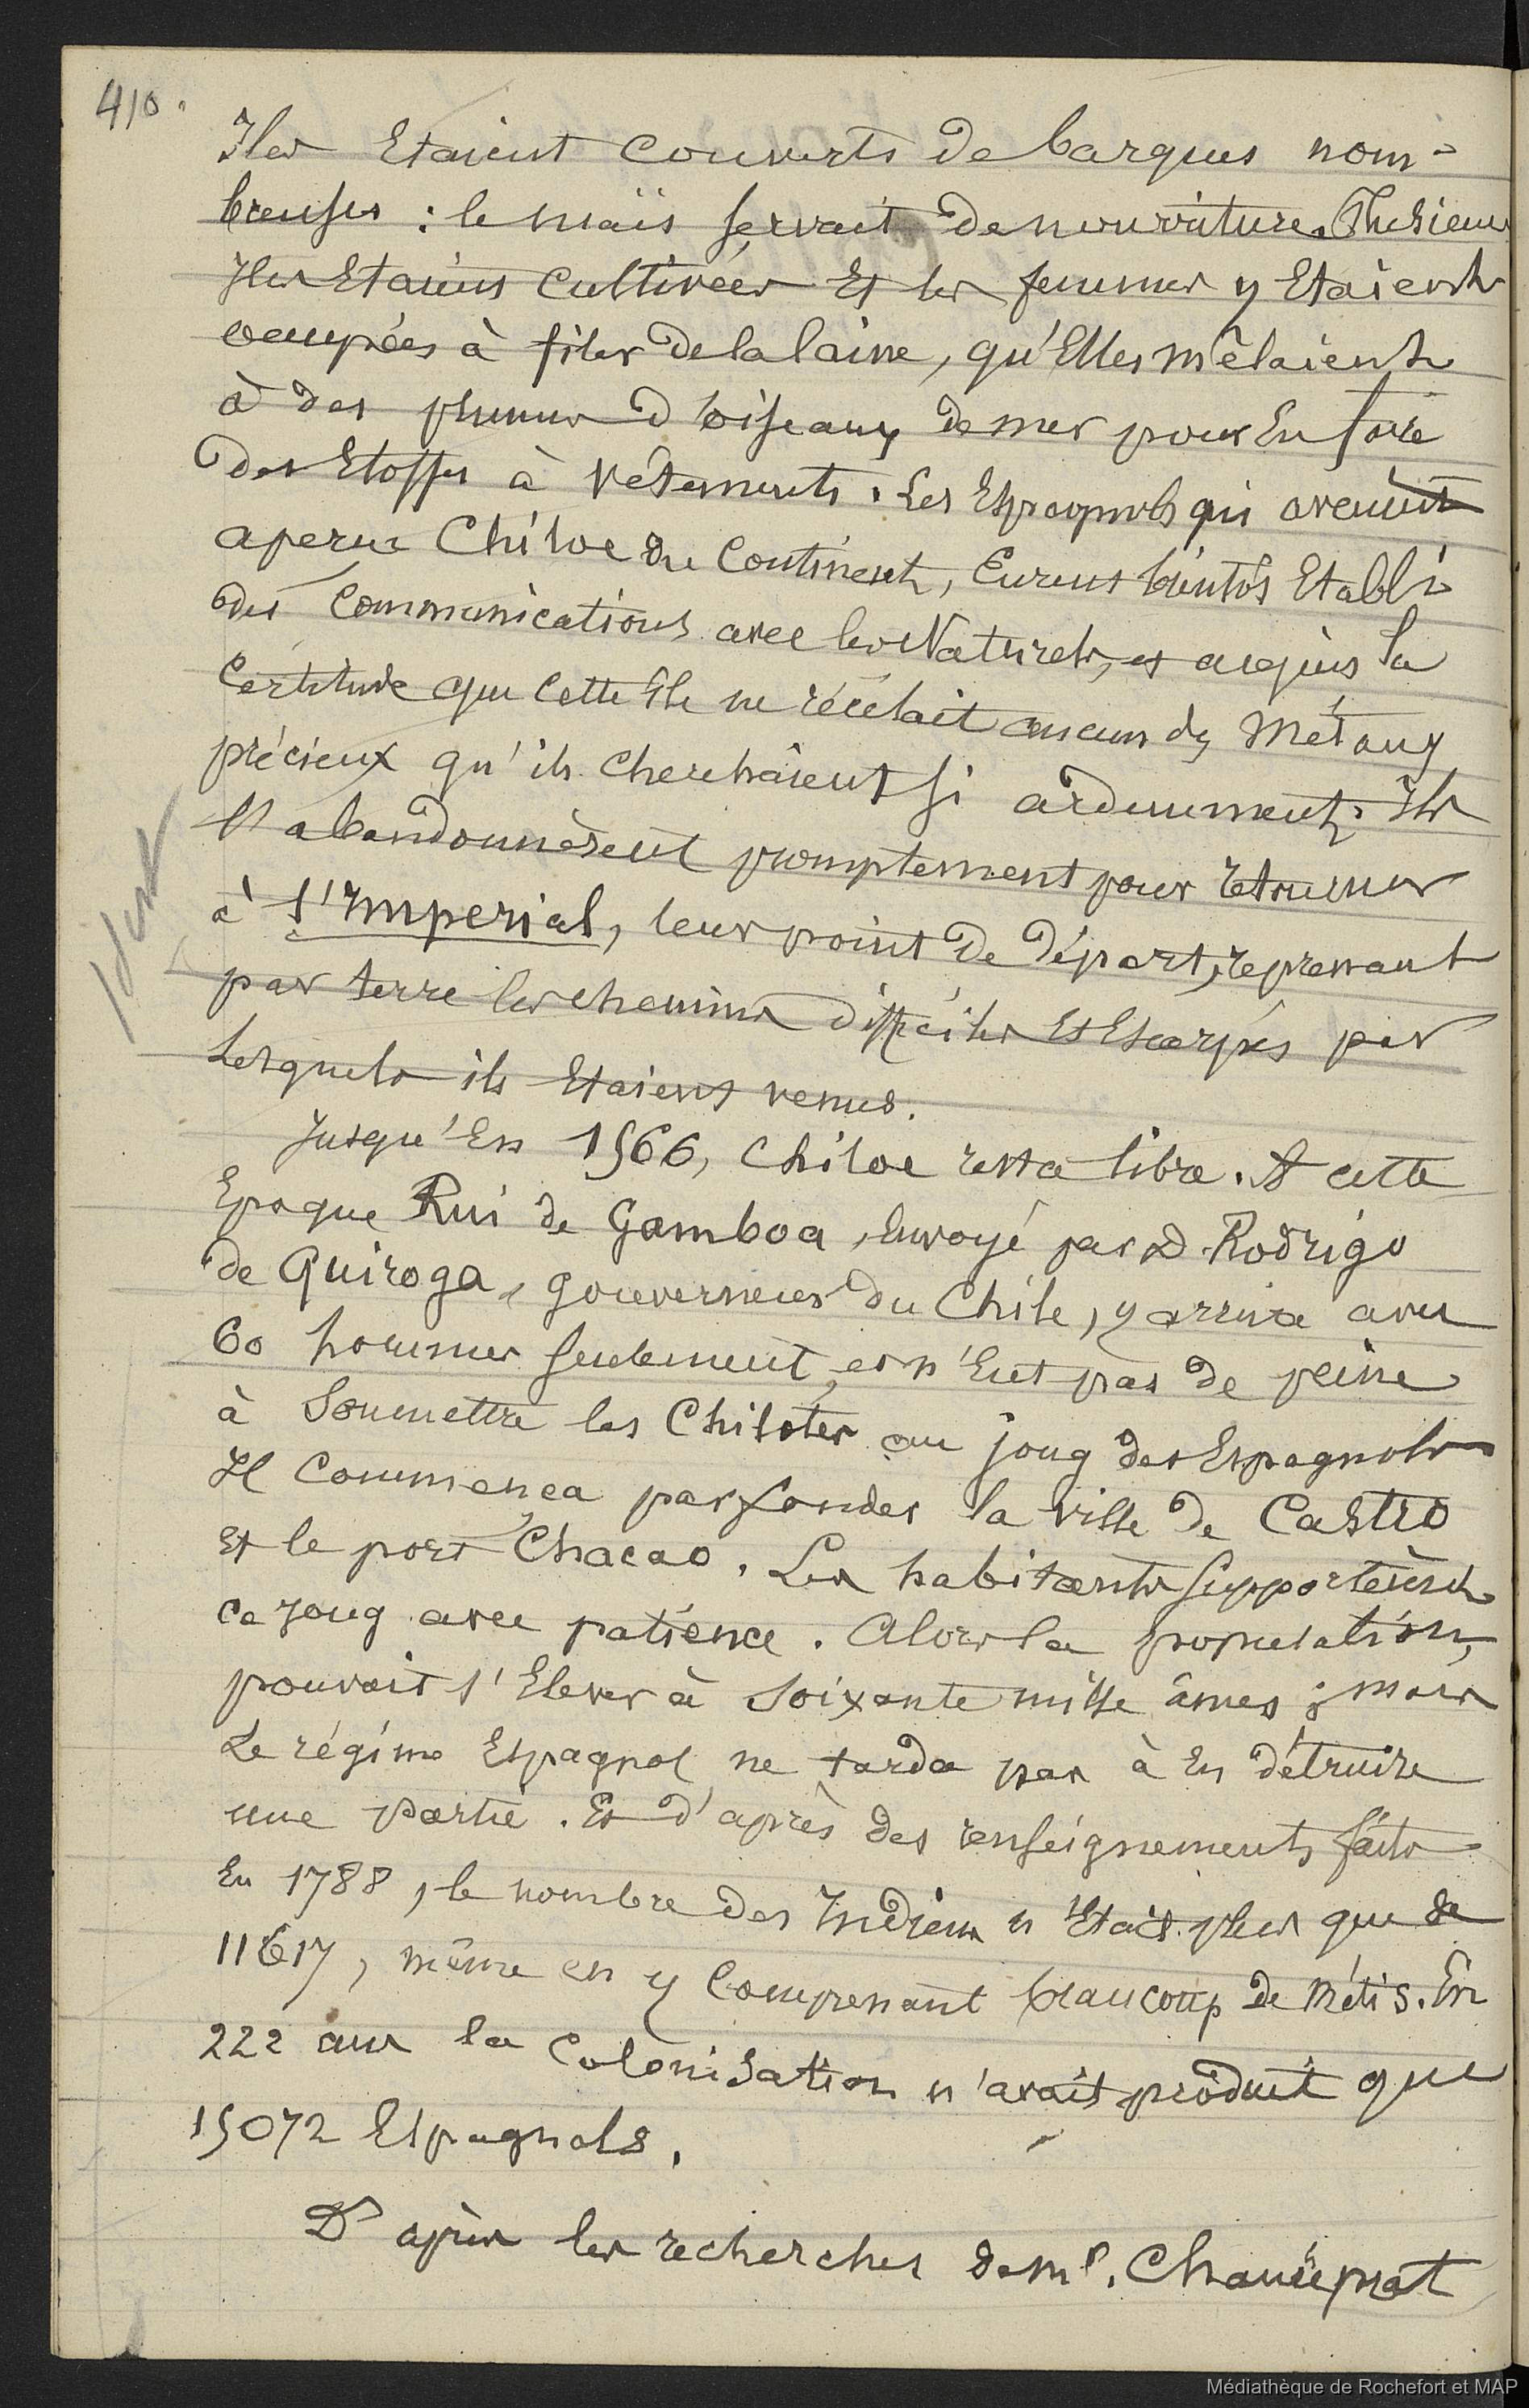 410.
Iles Etaient couverts de barques nom-
breuses : le maïs servait de nourriture. Plusieurs
Iles Etaient cultivées Et les femmes y Etaient
occupées à filer de la laine, qu'Elles mêlaient
à des plumes d'oiseaux de mer pour En faire
des Etoffes à vêtements. Les Espagnols qui avaient
aperçu Chiloe du Continent, Eurent bientôt Etabli
des Communications avec les Naturels, et acquis la
Certitude que cette Ile ne récélait aucun des Métaux
précieux qu'ils cherchaient si ardemment. Ils
l'abandonnèrent promptement pour retourner
à l'Imperial, leur point de départ, reprenant
par terre les chemins difficiles Et Escarpés par
Lesquels ils Etaient venus.
Jusqu'En 1566, Chiloe resta libre. A cette
Epoque Rui de Gamboa, Envoyé par D. Rodrigo
de Quiroga, gouverneur du Chile, y arriva avec
60 hommes seulement, et n'Eut pas de peine
à Soumettre les Chilotes au joug des Espagnols
Il Commença par fonder la ville de Castro
Et le port Chacao. Les habitants supportèrent
ce joug avec patience. Alors la population,
pouvait s'Elever à soixante mille âmes ; mais
Le régime Espagnol ne tarda pas à En détruire
une partie. Et d'après des renseignements faits
En 1788, le nombre des Indiens n'Etait plus que de
11617, même en y Comprenant beaucoup de Métis. En
222 ans la Colonisation n'avait produit que
15072 Espagnols.
D'après les recherches de Mr. Chaucheprat
Médiathèque de Rochefort et MAP